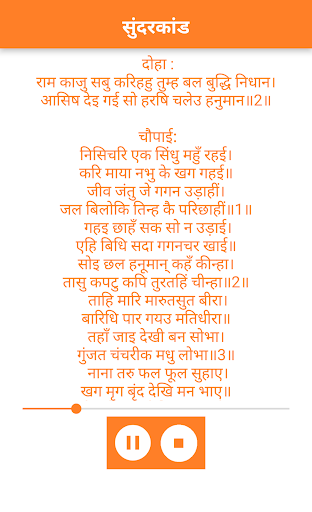 सुंदरकांड
दोहा :
राम काजु सबु करिहहु तुम्ह बल बुद्धि निधान।
आसिष देइ गई सो हरषि चलेउ हनुमान॥2॥
चौपाई:
निसिचरि एक सिंधु महुँ रहई।
करि माया नभु के खग गहई॥
जीव जंतु जे गगन उड़ाहीं।
जल बिलोकि तिन्ह कै परिछाहीं॥1॥
गहइ छाहँ सक सो न उड़ाई।
एहि बिधि सदा गगनचर खाई॥
सोइ छल हनूमान् कहँ कीन्हा।
तासु कपटु कपि तुरतहिं चीन्हा॥2॥
ताहि मारि मारुतसुत बीरा।
बारिधि पार गयउ मतिधीरा॥
तहाँ जाइ देखी बन सोभा।
गुंजत चंचरीक मधु लोभा॥3॥
नाना तरु फल फूल सुहाए।
खग मृग बृंद देखि मन भाए॥